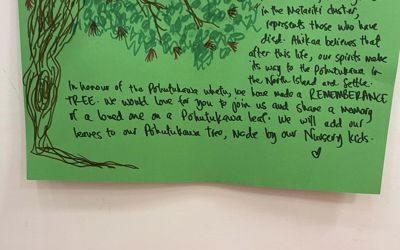 in the Matariki cluster,
represents those who have
died. Ahikaa believes that
after this life, our spirits make
its way to the Pohutukawa in
the North Island and settle.
In honour of the Pohutukawa whetu, we have made a REMEMBERANCE
TREE. We would love for you to join us and share a memory
of a loved one on a Pohutukawa leaf. We will add our
leaves to our Pohutukawa tree, made by our Nursery kids.